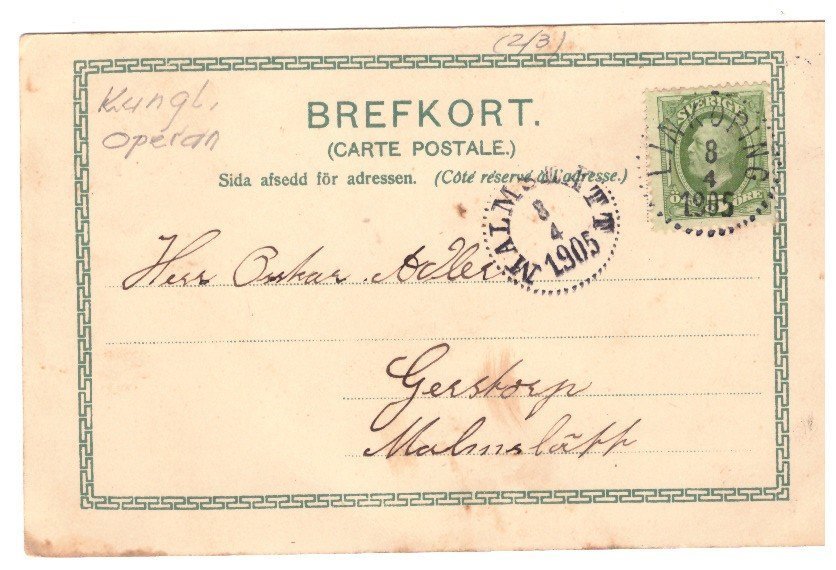 (2/3)
Kungl.
Operan
BREFKORT.
(CARTE POSTALE.)
Sida afsedd för adressen. (Côté réservé à l'adresse.)
SVERIGE
ÖRE
LINKÖPING
8
4
1905
MALMSLÄTT
8
4
1905
Herr Oskar Adler
Gerstorp
Malmslätt